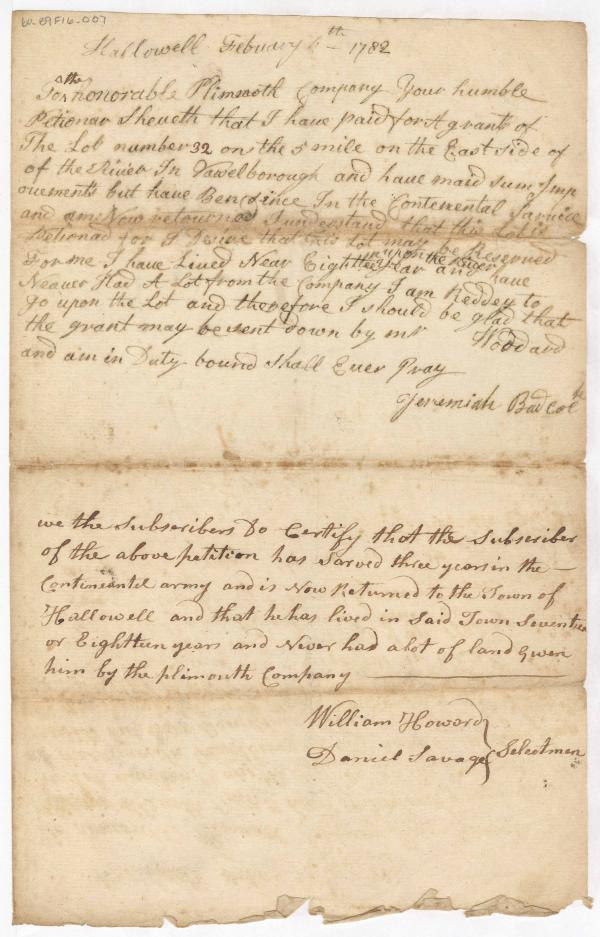 60-89F16-007
Hallowell Febuary 6th 1782
To the honorable Plimoth Company Your humble
Petionar Sheweth that I have paid for A grant of
The Lot number 32 on the 5 mile on the East Side of
of the River In Vawelborough and have maid sum Imp
ovements but have Ben Since In the Contenental Sarvice
and am Now retourned I understand that this Lot is
Petionad for I Desire that this Lot may be Reserved
For me I have Lived Near Eighteen year upon the River and have
Neaver Had A Lot from the Company I am Reddey to
go upon the Lot and therefore I should be glad that
the grant may be sent down by mr Woodard
and am in Duty bound shall Ever Pray
Jeremiah Badcok
we the Subscribers Do Certify that the Subscriber
of the above petition has Sarved three years in the
Contineantel army and is Now Returned to the Town of
Hallowell and that he has lived in Said Town Seventeen
or Eighteen years and Never had a lot of land Given
him by the plimouth Company
William Howard
Daniel Savage Selectmen